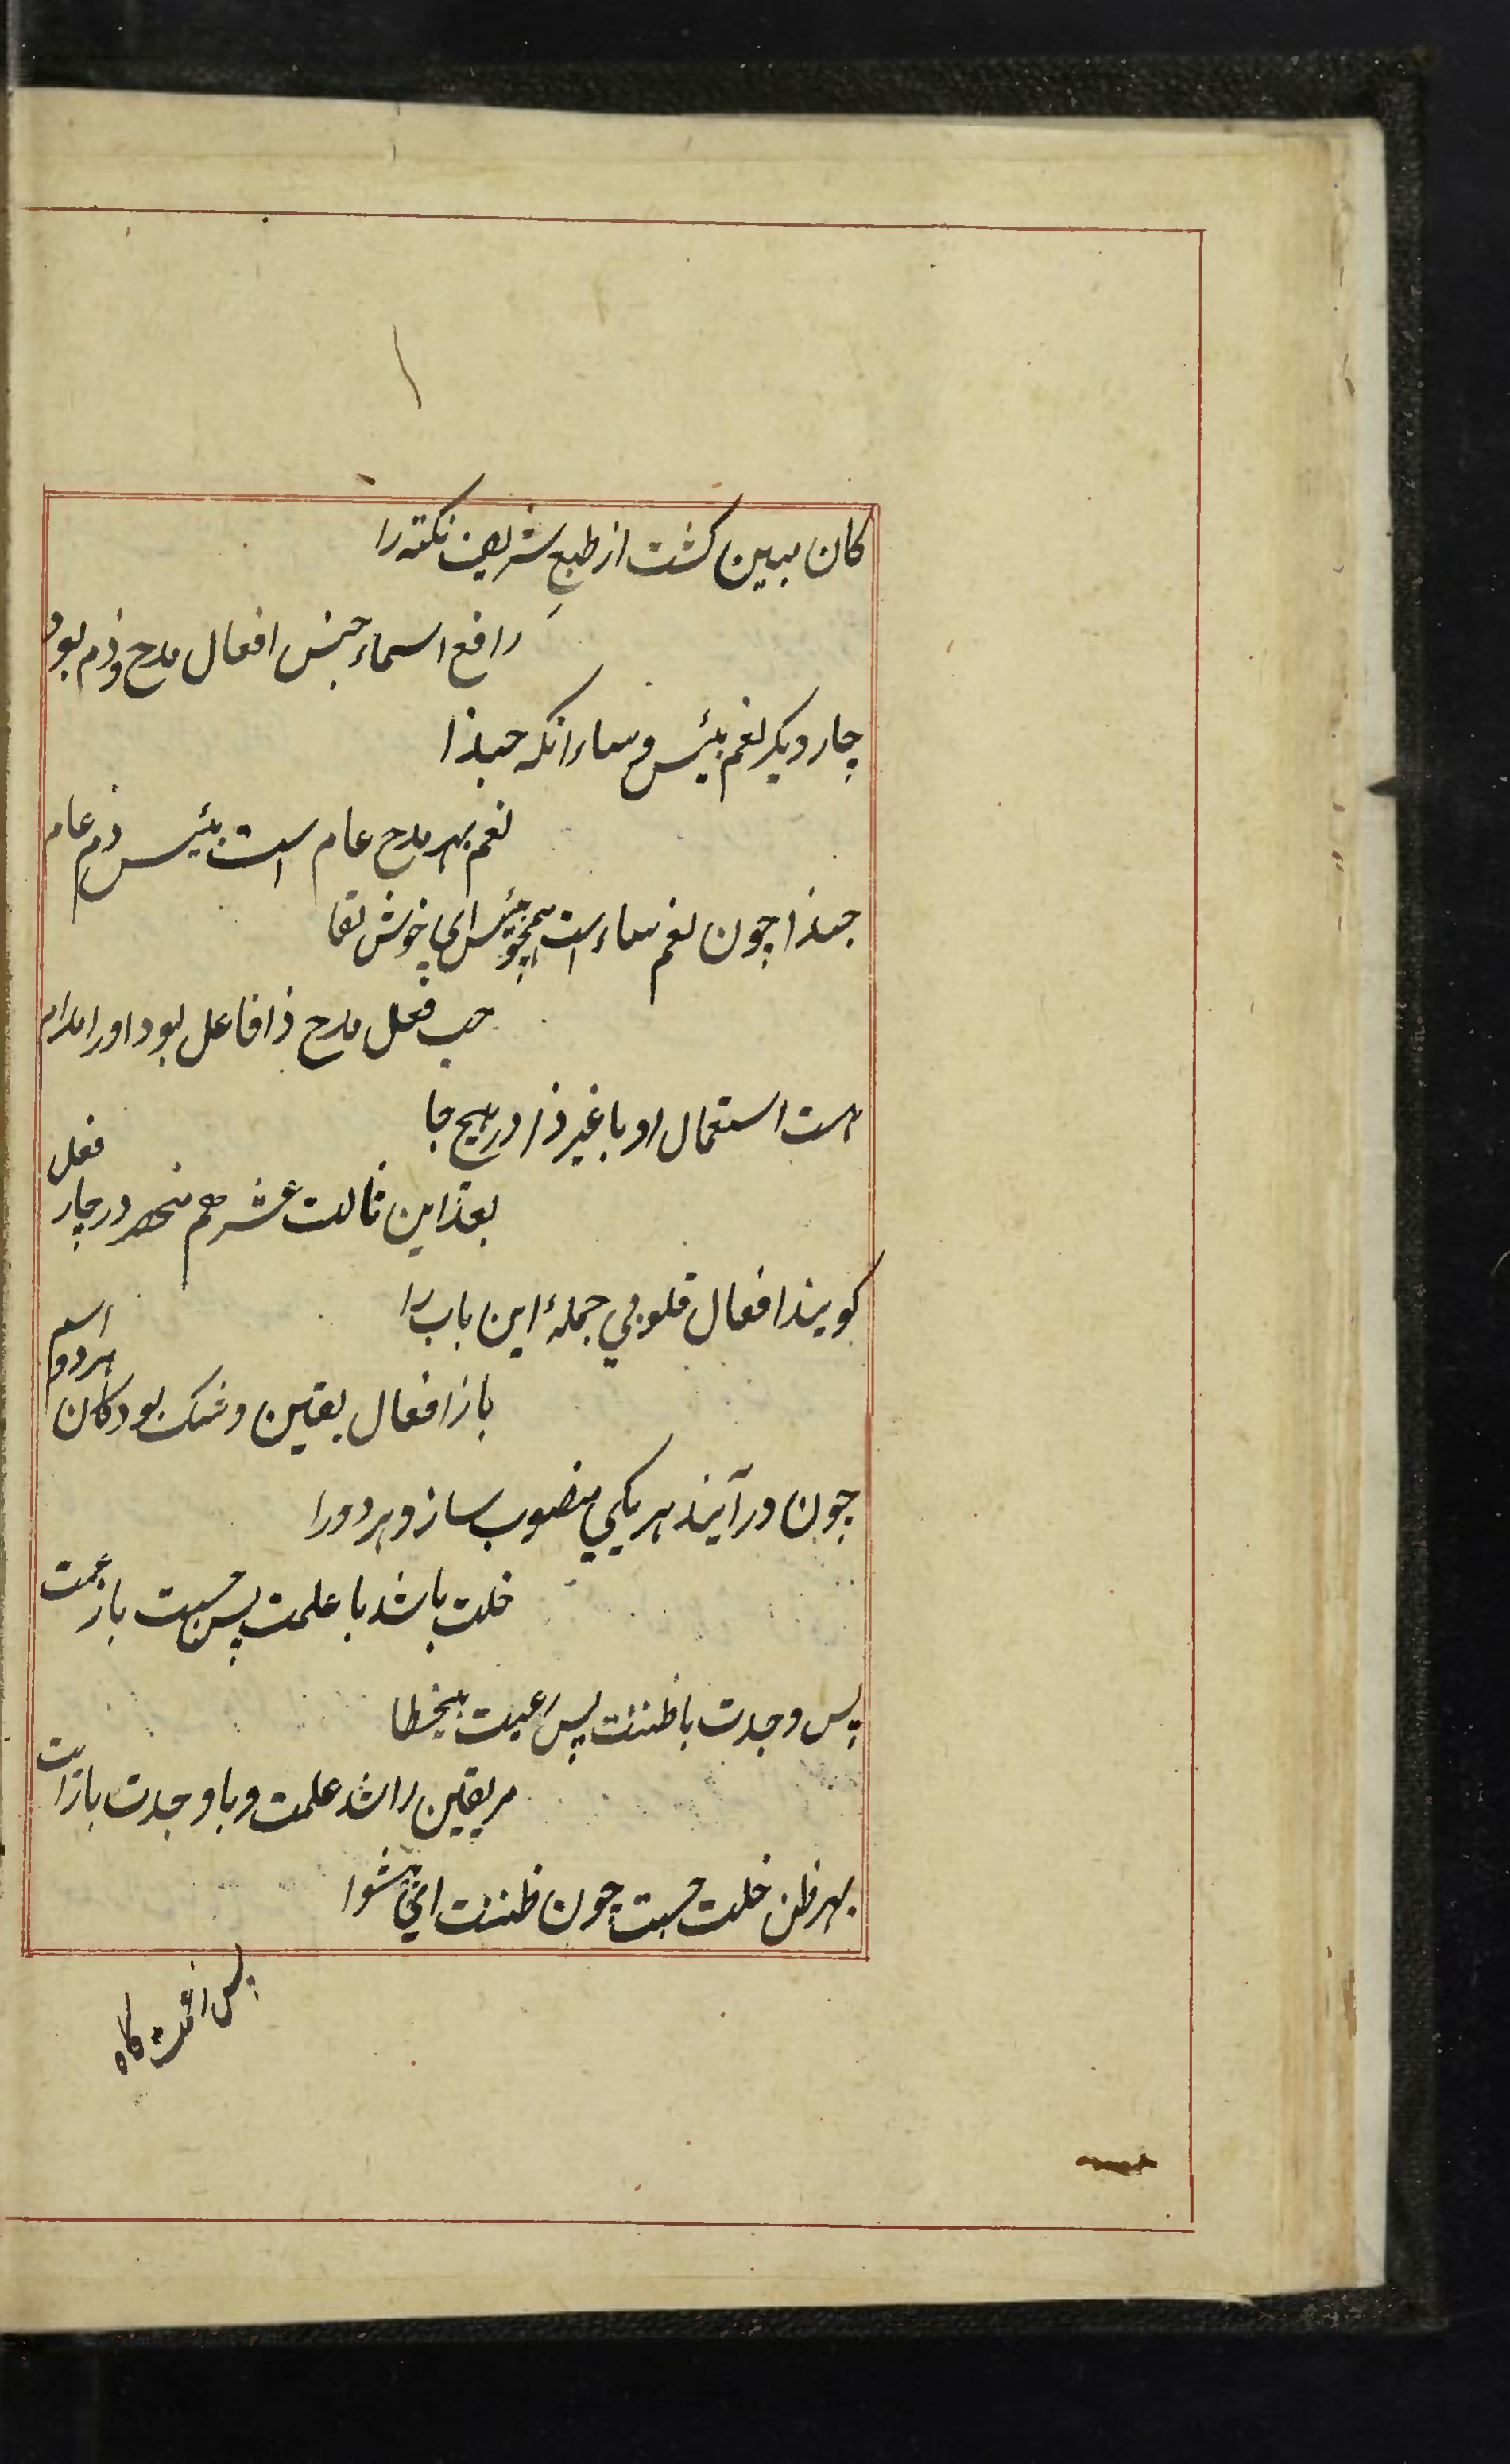 کان مبین کشت از طبع شریف نکته را
رافع اسماء جنس افعال مدح و ذم بود
چار دیکر نعم بئیس و ساء انکه حبذا
نعم بهر مدح عام است بئیس ذم عام
حبذا چون نعم ساء است همچو بئیس ای خوش لقا
حب فعل مدح ذا فاعل بود او را مدام
هست استعمال او با غیر ذا در هیچ جا
بعد ازین ثالث عشر هم منحصر در چار فعل
کویند افعال قلوبي جملۀ این باب را
باز افعال یقین و شک بود کان هر دو اسم
چون در آیند هر یکي منصوب سازد هر دو را
خلت باشد با علمت پس حسبت با زعمت
پس وجدت با ظننت پس رایت بیخطا
مر یقین را شد علمت و با وجدت با رایت
بهر ظن خلت حسبت چون ظننت اي پیشوا
پس زعمت کاه